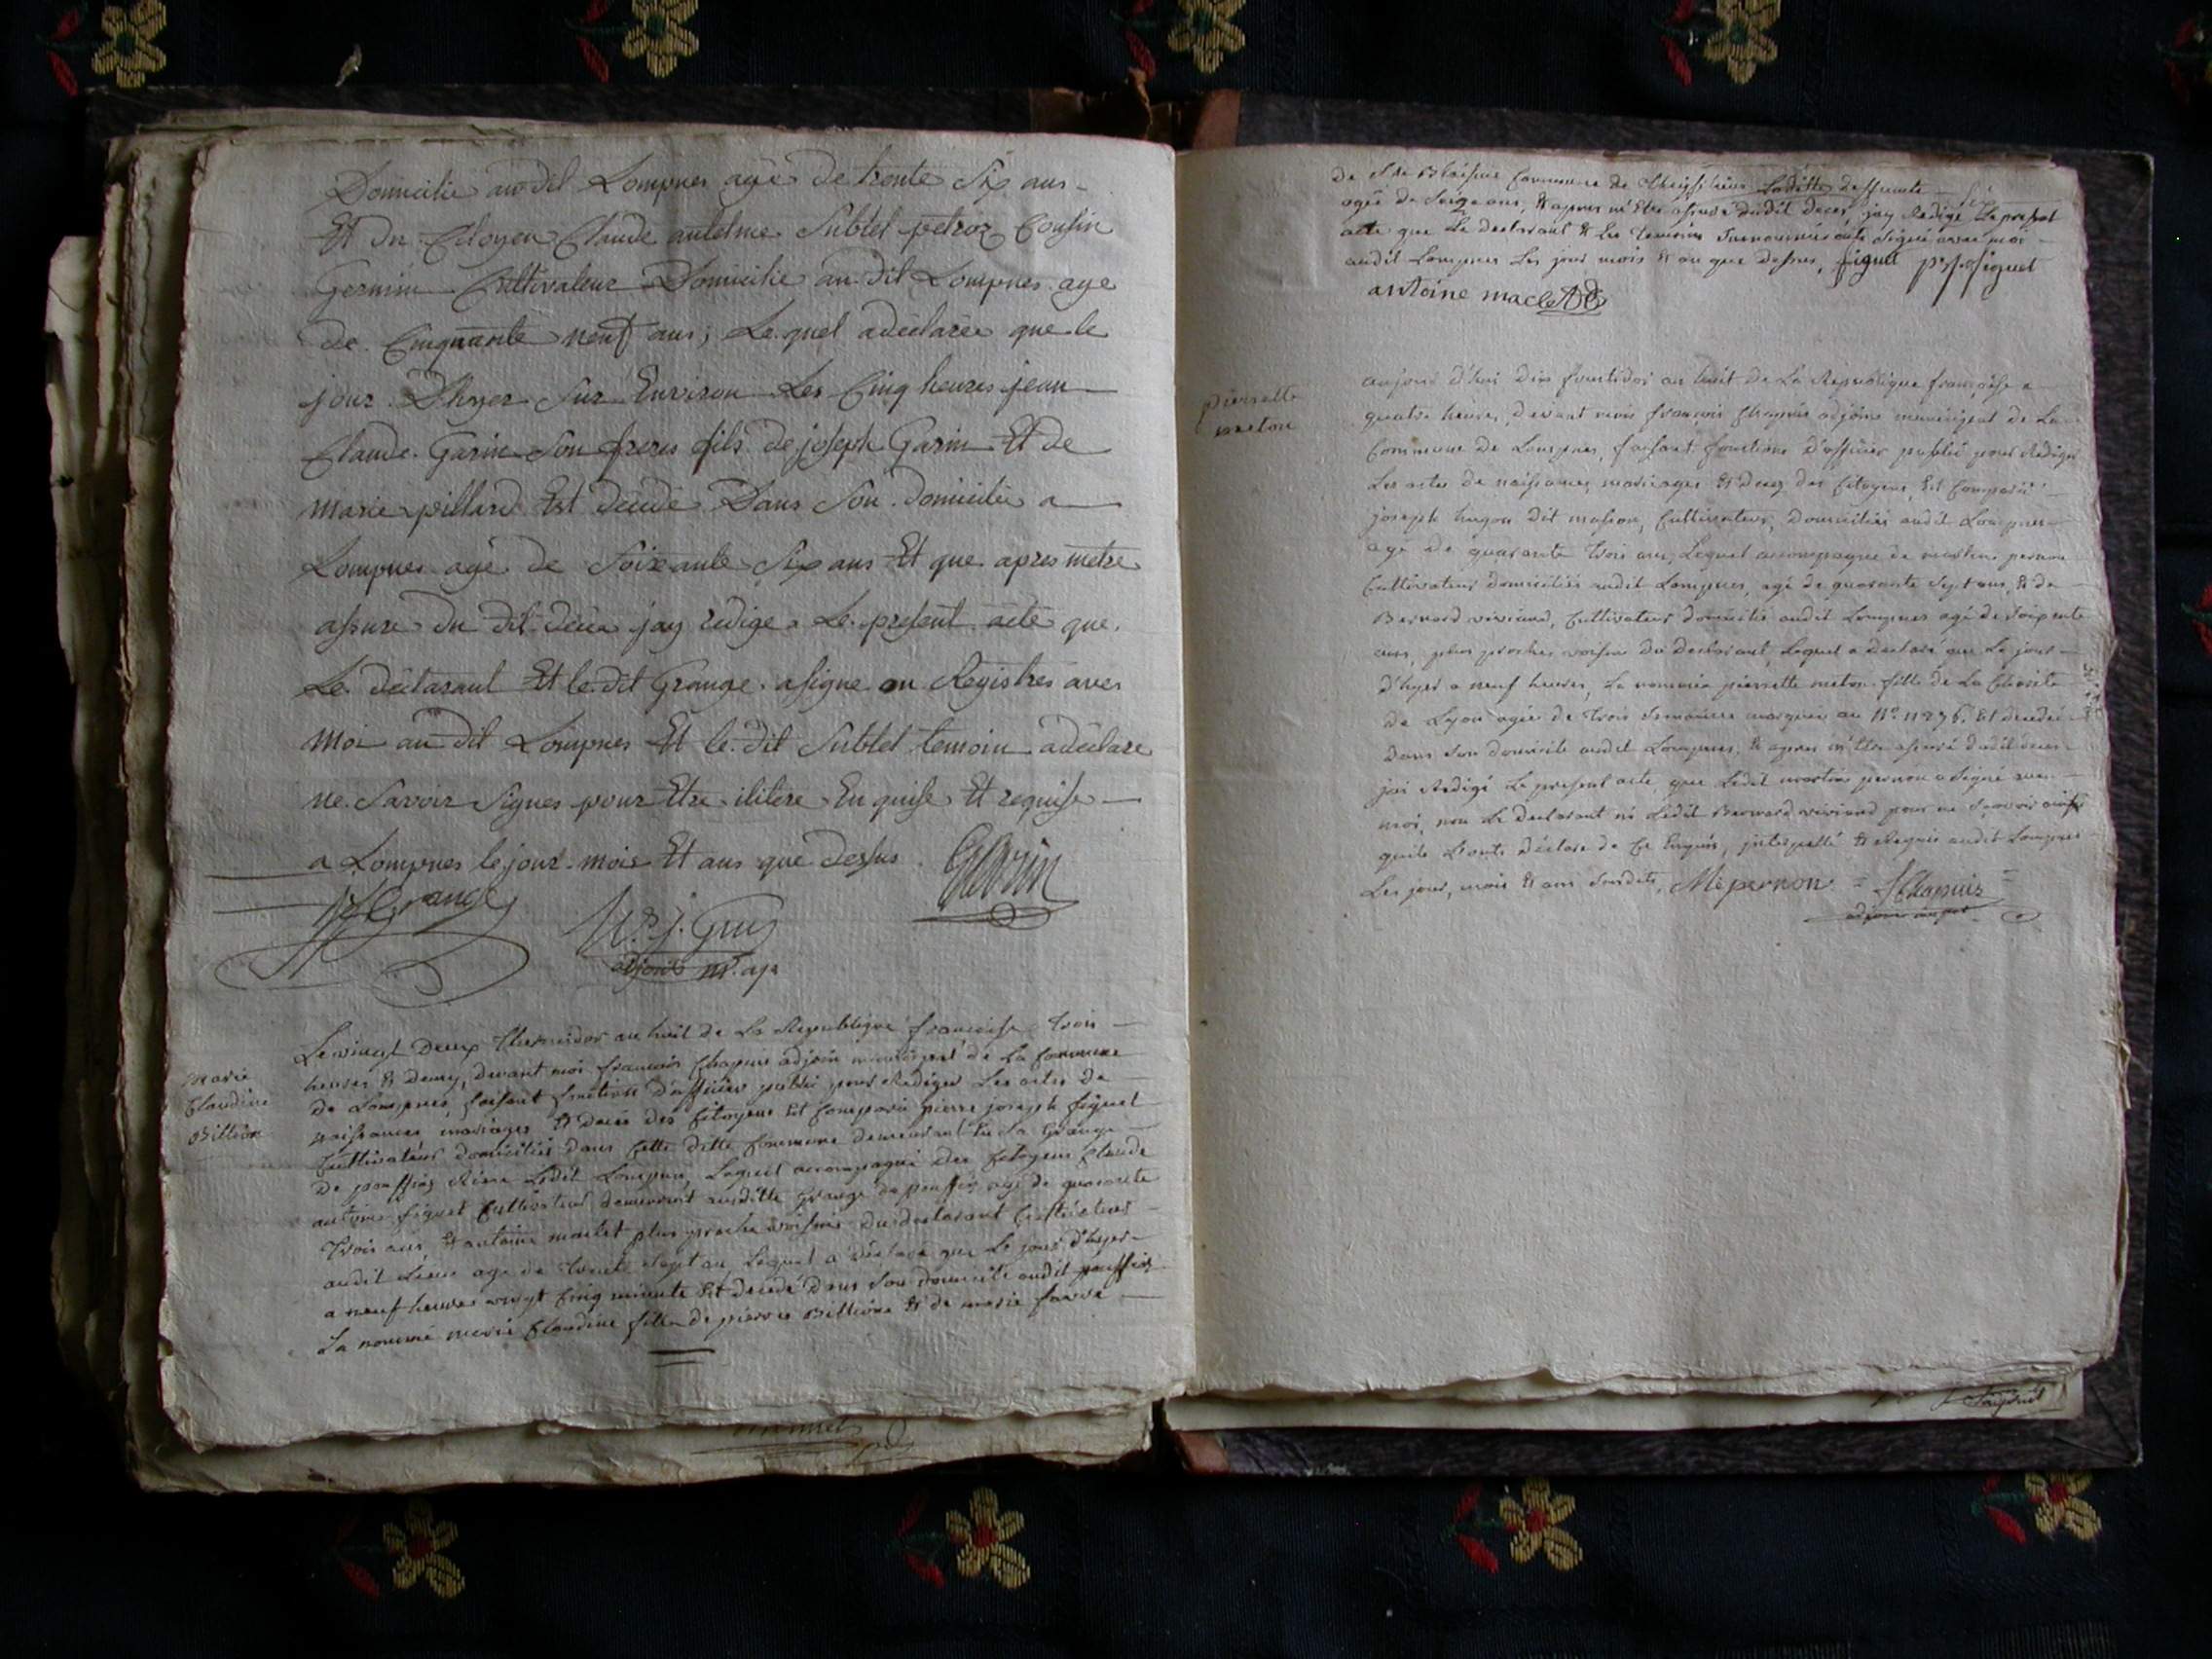 Domicilié au dit Lompnes agé de trente Six ans
Et du Citoyen Claude antelme Sublet petroz Cousin
Germin Cultivateur Domicilie au dit Lompnes age
de Cinquante neuf ans; Le quel adéclarée que le
jour D'hyer Sur Environ Les Cinq heures jean
Claude Garin Son freres fils de joseph Garin Et de
marie pillard Est décédé Dans Son domicilie a
Lompnes agé de Soixante Six ans Et que apres metre
assure du dit décéa jay redige Le present acte que
Le déclarant Et le dit Grange a signe au Registres avec
Moi au dit Lompnes Et le dit Sublet temoin adéclare
ne Savoir Signes pour Etre ilitere En quise Et requise
a Lompnes le jour mois Et ans que dessus. Garin
Grange
Guy
adjoint
marie
Claudine
Billion
Le vingt Deux Thermidor an huit de La Republique francoise trois
heures & demy, devant moi francois Chapuis adjoin municipal de La Commune
de Lompnes, faisant fonction d'officier public pour Rediger Les actes de
naissances mariages & décès des Citoyens Est Comparu pierre joseph figuet
Cultivateur domicilié dans Cette ditte Commune demeurant En La Grange
de Lompnes, Lequel accompagné des Citoyens Claude
antoine figuet Cultivateur demeurant auditte grange de agé de quarante
trois ans, & antoine maclet plus proche voisin du declarant Cultivateur
audit Lieu age de trente sept an, Lequel a déclaré que Le jour d'hyer
a neuf heures vingt Cinq minute Est décédé dans Son domicile audit
La nommé marie Claudine fille de pierre Billion & de marie favre
De Commune de Ladite deffunte
agée de Seize ans, & apres m'Etre assuré dudit deces, jay Redigé Le present
acte que Le declarant & Les temoins ont Signé avec moi
audit Lompnes Les jour mois & an que dessus, figuet figuet
antoine maclet
pierrette
meton
aujourd'hui dix fructidor an huit de La Republique françoise a
quatre heures, devant moi françois Chapuis adjoin municipal de La
Commune de Lompnes, faisant fonctions d'officier public pour Rediger
Les actes de naissances, mariages & deces des Citoyens, Est Comparu
joseph hugon dit masson, Cultivateur, Domicilié audit Lompnes
agé de quarante trois ans, Lequel accompagné de martin pernon
Cultivateur domicilié audit Lompnes, agé de quarante Sept ans, & de
Bernard viviand, Cultivateur domicilié audit Lompnes agé de Soixante
ans, plus proches voisin du declarant, Lequel a declaré que Le jour
d'hyer a neuf heures, La nommée pierrette meton fille de La Charité
de Lyon agée de trois Semaines marquée au N° Est decedée
dans Son domicile audit Lompnes, & apres m'Etre assuré dudit deces
jai Redigé Le present acte, que Ledit martin pernon a Signé avec
moi, non Le Declarant ni Ledit Bernard viviand pour ne Scavoir ainsi
quils L'ont déclaré de Ce Enquis, interpellé & Requis audit Lompnes
Les jour, mois & ans Susdits, M pernon = f Chapuis =